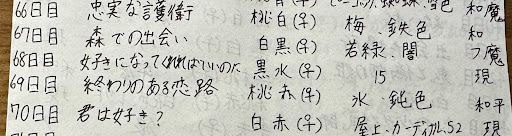 66日目 忠実な護衛 桃白(♀) 和魔
67日目 森での出会い 白黒(♀) 梅、鉄色 和
68日目 好きになってくれればいいのに 黒水(♀) 若緑、闇 つ魔
69日目 終わりのある恋路 桃赤(♀) 15 現
70日目 君は好き? 白赤(♀) 氷、鈍色 和平
屋上、カーディガル、52 現